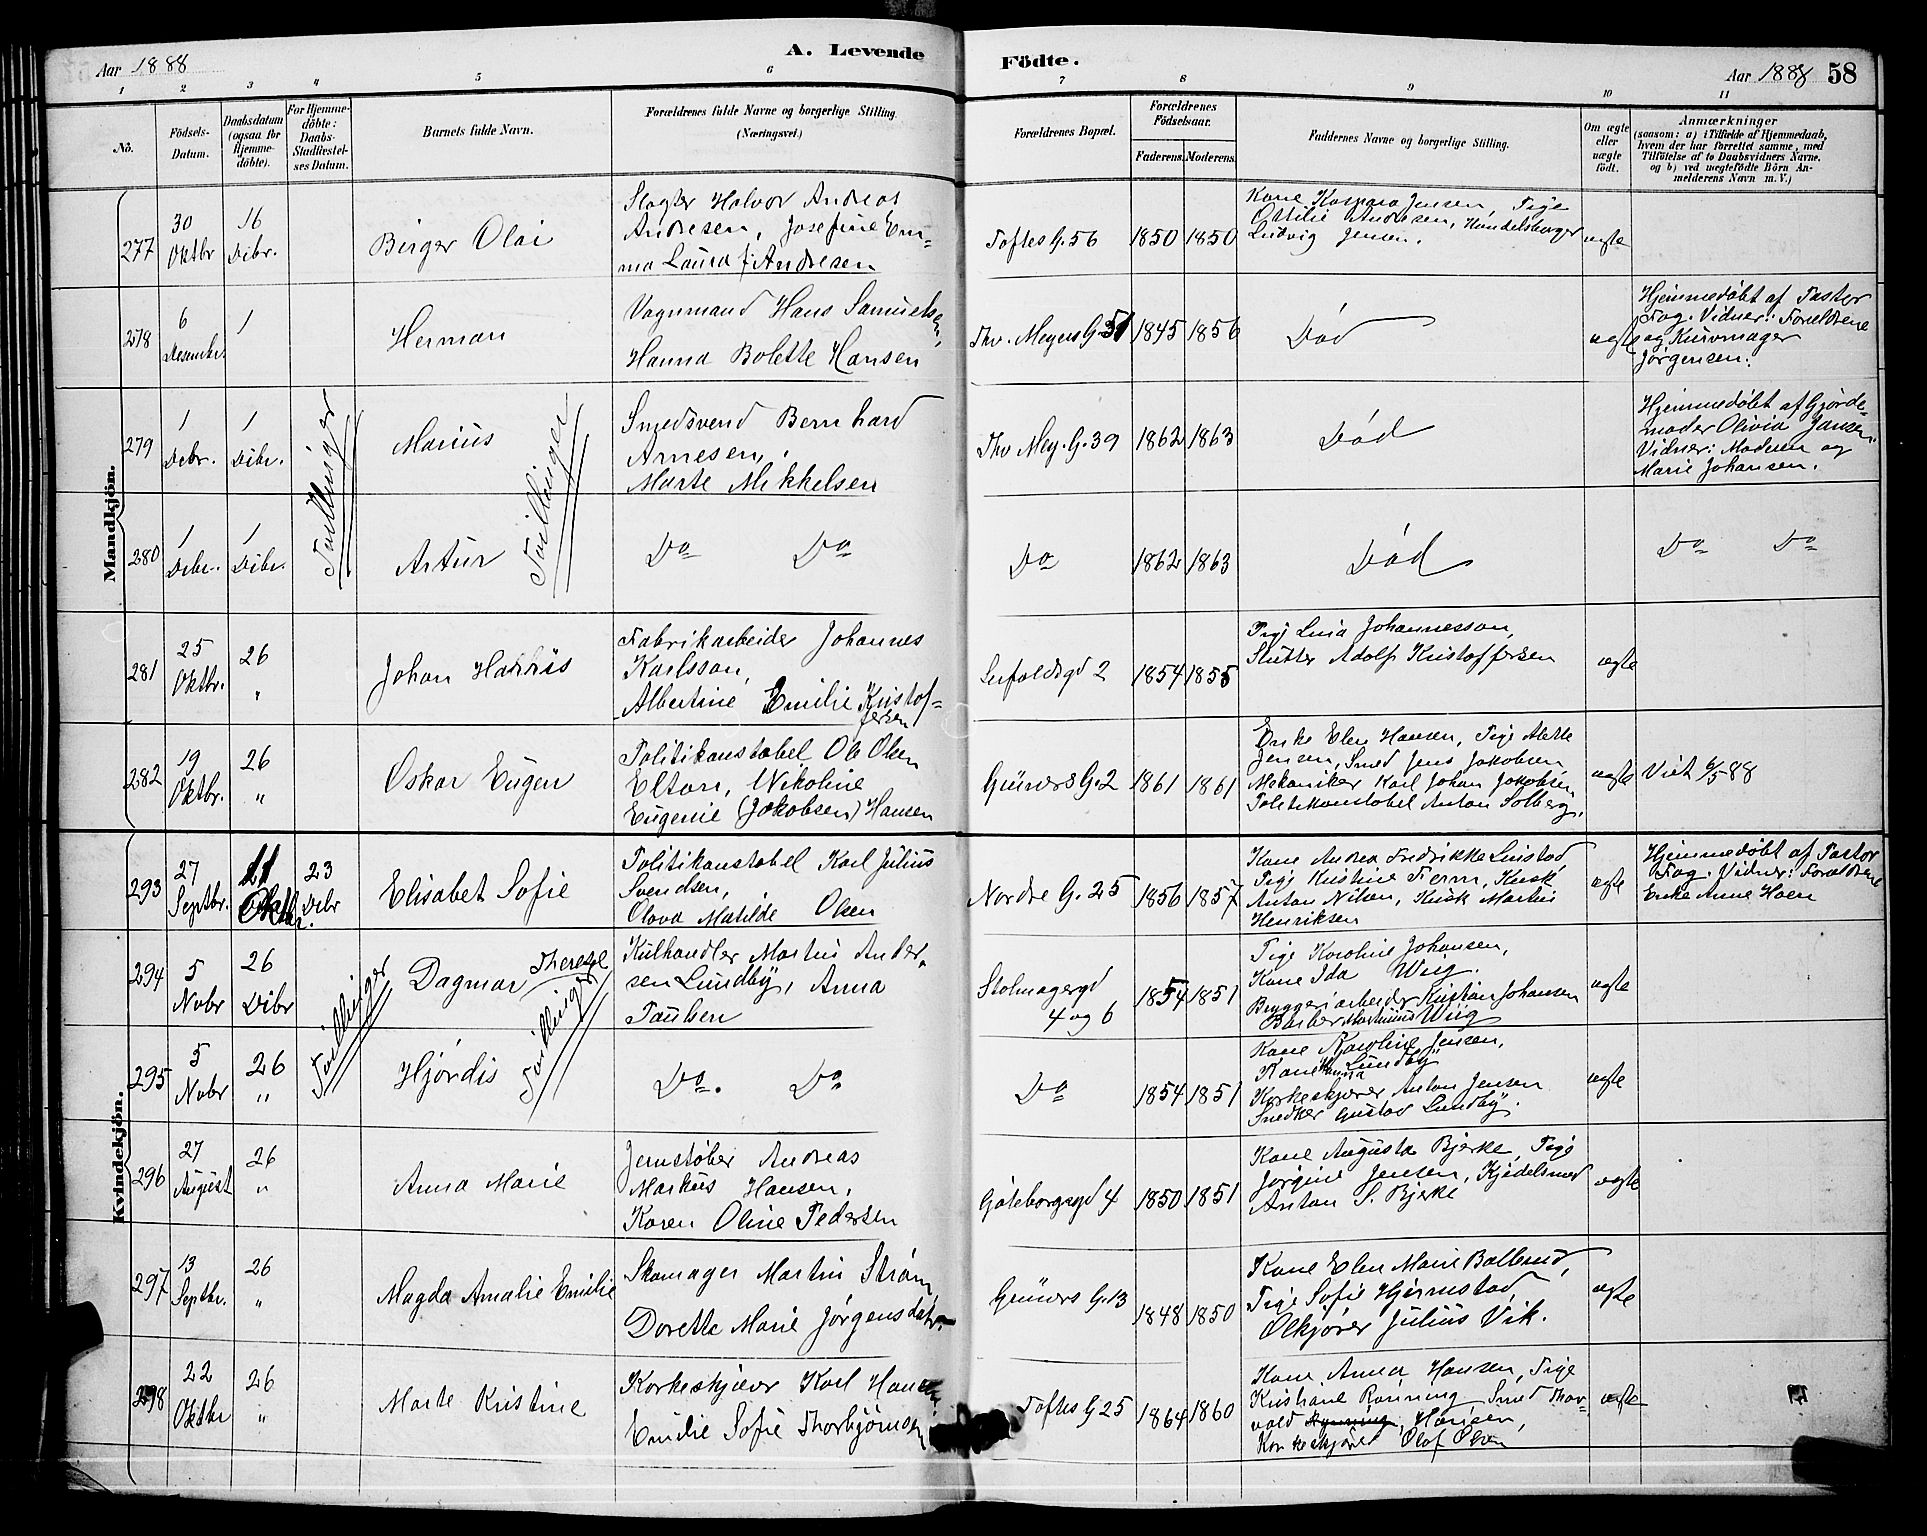 Aar 1888
A. Levende
Fødte.
Aar 1888 58
1 2 3 4 5 6 7 8 9 10 11
No.
Födsels-
Datum.
Daabsdatum
(ogsaa for
Hjemme-
döbte).
For Hjemme-
döbte:
Daabs-
Stadfæstel-
ses Datum.
Barnets fulde Navn.
Forældrenes fulde Navne og borgerlige Stilling.
(Næringsvei.)
Forældrenes Bopæl.
Forældrenes
Födselsaar.
Faderens. Moderens.
Faddernes Navne og borgerlige Stilling.
Om ægte
eller
uægte
født.
Anmærkninger
(saasom: a) i Tilfælde af Hjemmedaab,
hvem der har forrettet samme, med
Tilføielse af to Daabsvidners Navne,
og b) ved uægtefødte Börn An-
melderens Navn m. V.)
Mandkjön.
277
30
Oktbr
16
Debr.
Birger Olai
Slagter Halvor Andreas
Andresen, Josefine Em-
ma Laura f. Andresen
Toftes G. 56
1850 1850
Kone Kaspara Jensen, Pige
Ottilie Andresen, Handelsborger
Ludvig Jensen.
ægte
278
6
Desembr.
1
Herman
Vognmand Hans Samuelsen,
Hanna Bolette Hansen
Thv. Meyers G. 51
1845 1856
Död
ægte
Hjemmedøbt af Pastor
Fog. Vidner: Forældrene
og Kurvmager
Jørgensen.
279
1
Debr.
1
Debr.
Tvillinger
Marius
Tvillinger
Smedsvend Bernhard
Arnesen,
Marte Mikkelsen
Thv Mey. G. 39
1862 1863
Død
Hjemmedøbt af Gjorde-
moder Olivia Jansen.
Vidner: Moderen og
Marie Johansen.
280
1
Debr.
1
Debr.
Artur
Do Do
Do
1862 1863
Død
Do Do
281
25
Oktbr.
26
"
Johan
Fabrikarbeider Johannes
Karlsson,
Albertine Emilie Kristof-
fersen
2
1854 1855
Pige Lina Johannesson,
Adolf Kristoffersen
ægte
282
19
Oktbr.
26
"
Oskar Eugen
Politikonstabel Ole Olsen
Elton, Nikoline
Eugenie (Jakobsen) Hansen
Grüners G. 2
1861 1861
Enke Elen Hansen, Pige Mette
Jensen, Smed Jens Jakobsen
Mekaniker Karl Johan Jakobsen
Politikonstabel Anton Solberg.
ægte
Viet 6/5 88
Kvindekjön.
293
27
Septbr.
21
Oktbr.
23
Debr
Elisabet Sofie
Politikonstabel Karl Julius
Svendsen,
Olava Matilde Olsen
Nordre G. 25
1856 1857
Kone Andrea Fredrikke Linstad
Pige Kristine Ferm, Kusk
Anton Nilsen, Kusk Martin
Henriksen
ægte
Hjemmedøbt af Pastor
Fog. Vidner: Forældrene
Enke Anne Hoen
294
5
Nobr
26
Debr
Tvillinger
Dagmar Therese
Tvillinger
Kulhandler Martin Ander-
sen Lundby, Anna
Paulsen
Stolmagergd
4 og 6
1854 1851
Pige Karoline Johansen,
Kone Ida Wiig.
Bryggeriarbeider Kristian Johansen
Barber Wiig
ægte
295
5
Nobr
26
"
Hjördis
Do. Do
Do
1854 1851
Kone Karoline Jensen,
Kone Hanna Lundby
Korkeskjærer Anton Jensen
Snedker Gustav Lundby.
ægte
296
27
August
26
"
Anna Marie
Jernstøber Andreas
Markus Hansen,
Karen Oline Pedersen
Göteborgsgd 4
1850 1851
Kone Augusta Bjerke, Pige
Jørgine Jensen, Kjedelsmed
Anton S. Bjerke
ægte
297
13
Septbr.
26
"
Magda Amalie Emilie
Skomager Martin Strøm
Dorette Marie Jørgensdatr
Grüners G. 13
1848 1850
Kone Elen Marie Ballerud,
Pige Sofie Hjermstad
Ølkjører Julius Vik.
ægte
298
22
Oktbr
26
"
Marte Kristine
Korkeskjærer Karl Hansen
Emilie Sofie Thorbjørnsen
Toftes G 25
1864 1860
Kone Anna Hansen, Pige
Kristiane Rønning Smed Thor-
vald Hansen,
Korkeskjærer Olof Olsen
ægte